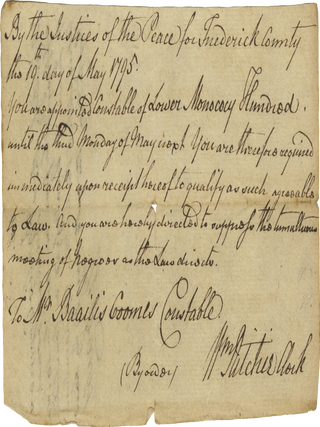 By the Justices of the Peace for Frederick County
the 19th. day of May 1795.
You are appointed Constable of Lower Monococy Hundred.
until the third Monday of May next You are therefore required
immediately upon receipt hereof to qualify as such agreeable
to Law. And you are hereby directed to suppress the tumultuous
meeting of Negroes as the Law directs.
To Mr. Baailis Coomes Constable
(By order)
Wm Ritchie Clerk